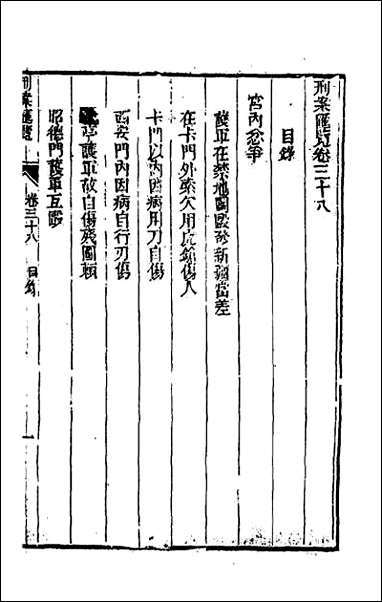 刑案匯覽卷三十八
目錄
宮內忿爭
護軍在禁地鬬毆發新疆當差
在卡門外索欠用虎鎗傷人
卡門以內因病用刀自傷
西安門內因病自行刃傷
亭護軍故自傷殘圖賴
昭德門護軍互毆
刑案匯覽 卷三十八 目錄 一